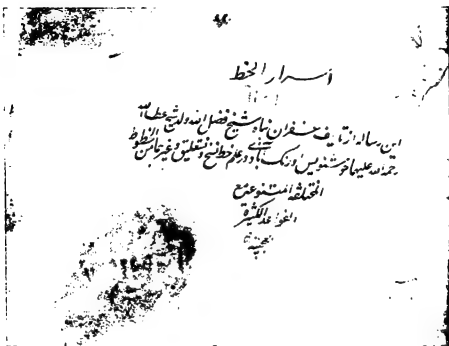 اسرار الخط
این رساله از تالیف غفران پناه شیخ فضل الله ولد شیخ عطاء الله
رحمة الله علیهما خوشنویس اورنگ آبادی در علم خط نسخ و نستعلیق و غیرها من الخطوط
المختلفة المتنوعة مع
الفواید الکثیرة